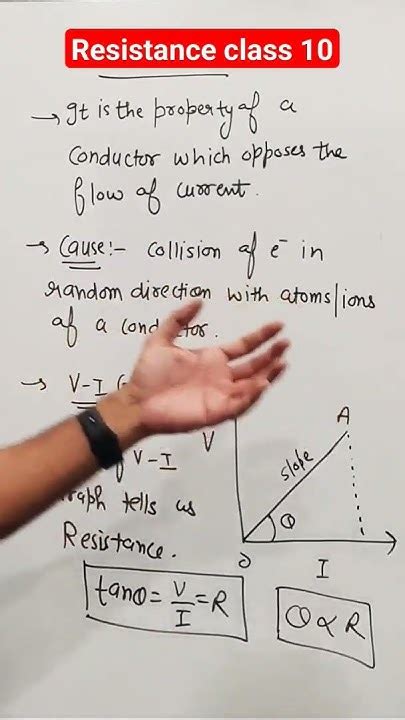 Resistance class 10
→ It is the property of a
conductor which opposes the
flow of current.
→ Cause:- collision of e⁻ in
random direction with atoms/ions
of a
→ V-I
V-I
tells us
Resistance.
tanθ = V/I = R
V
A
slope
θ
O
I
θ ∝ R